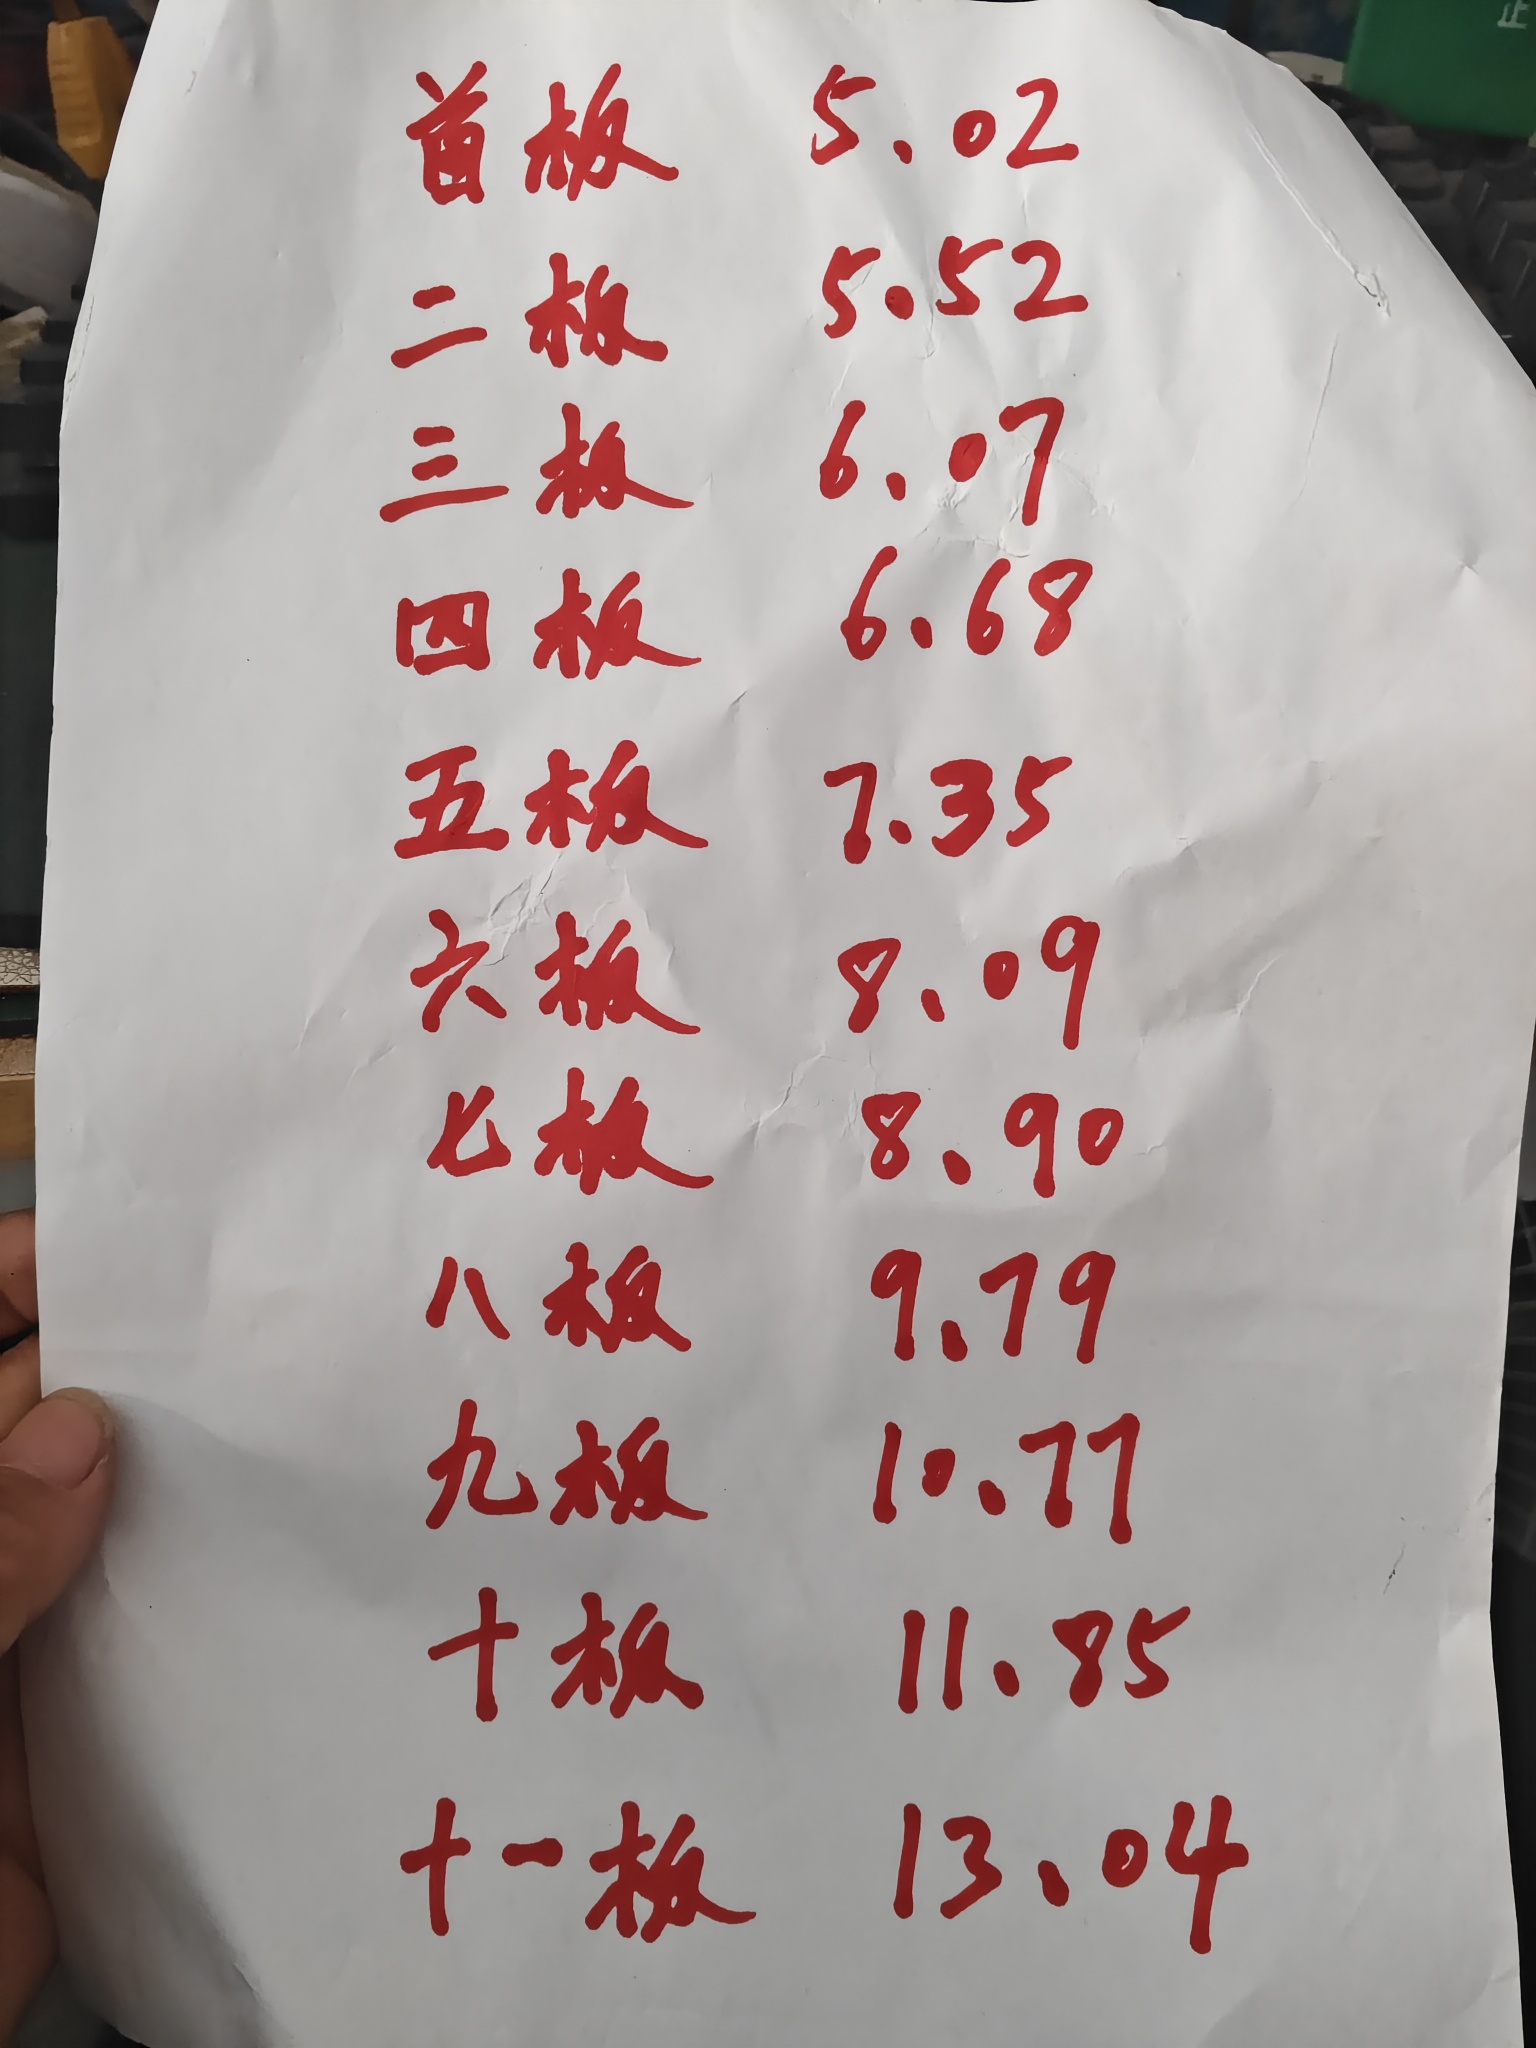 正
首板 5.02
二板 5.52
三板 6.07
四板 6.68
五板 7.35
六板 8.09
七板 8.90
八板 9.79
九板 10.77
十板 11.85
十一板 13.04